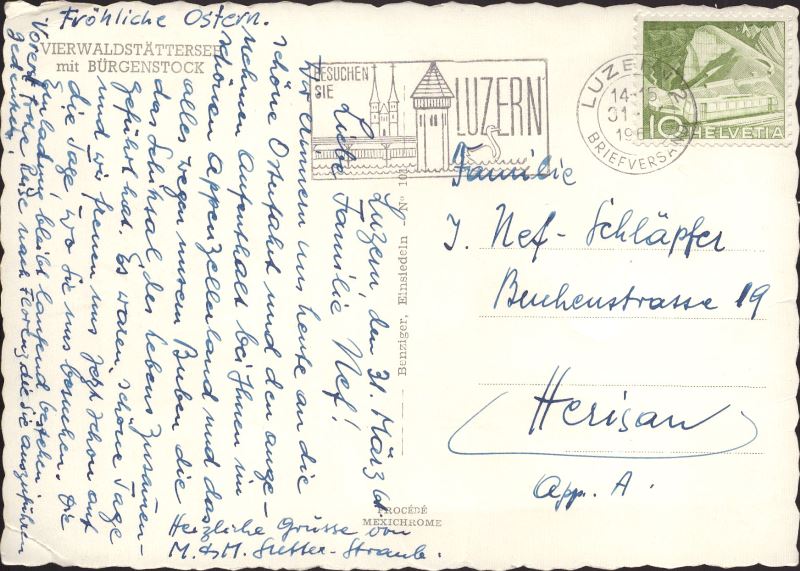 Fröhliche Ostern.
VIERWALDSTÄTTERSEE
mit BÜRGENSTOCK
Luzern, den 31. März 61.
Liebe Familie Nef!
Wir erinnern uns heute an die
schöne Osterfahrt und den ange-
nehmen Aufenthalt bei Ihnen im
schönen Appenzellerland und das
alles wegen unsern Buben die
das Schicksal des Lebens zusammen-
geführt hat. Es waren schöne Tage
und wir freuen uns jetzt schon auf
die Tage, wo Sie uns besuchen. Die
Einladung bleibt laufend bestehen.
Vorerst Ihre Reise nach Florenz die Sie auszuführen
Herzliche Grüsse von
M. & M. Sutter-Straub.
Benziger, Einsiedeln - Nº
PROCÉDÉ
MEXICHROME
BESUCHEN
SIE
LUZERN
LUZERN 2
14-15
31
196
BRIEFVERSAND
10 HELVETIA
Familie
J. Nef-Schläpfer
Buchenstrasse 19
Herisau
App. A.